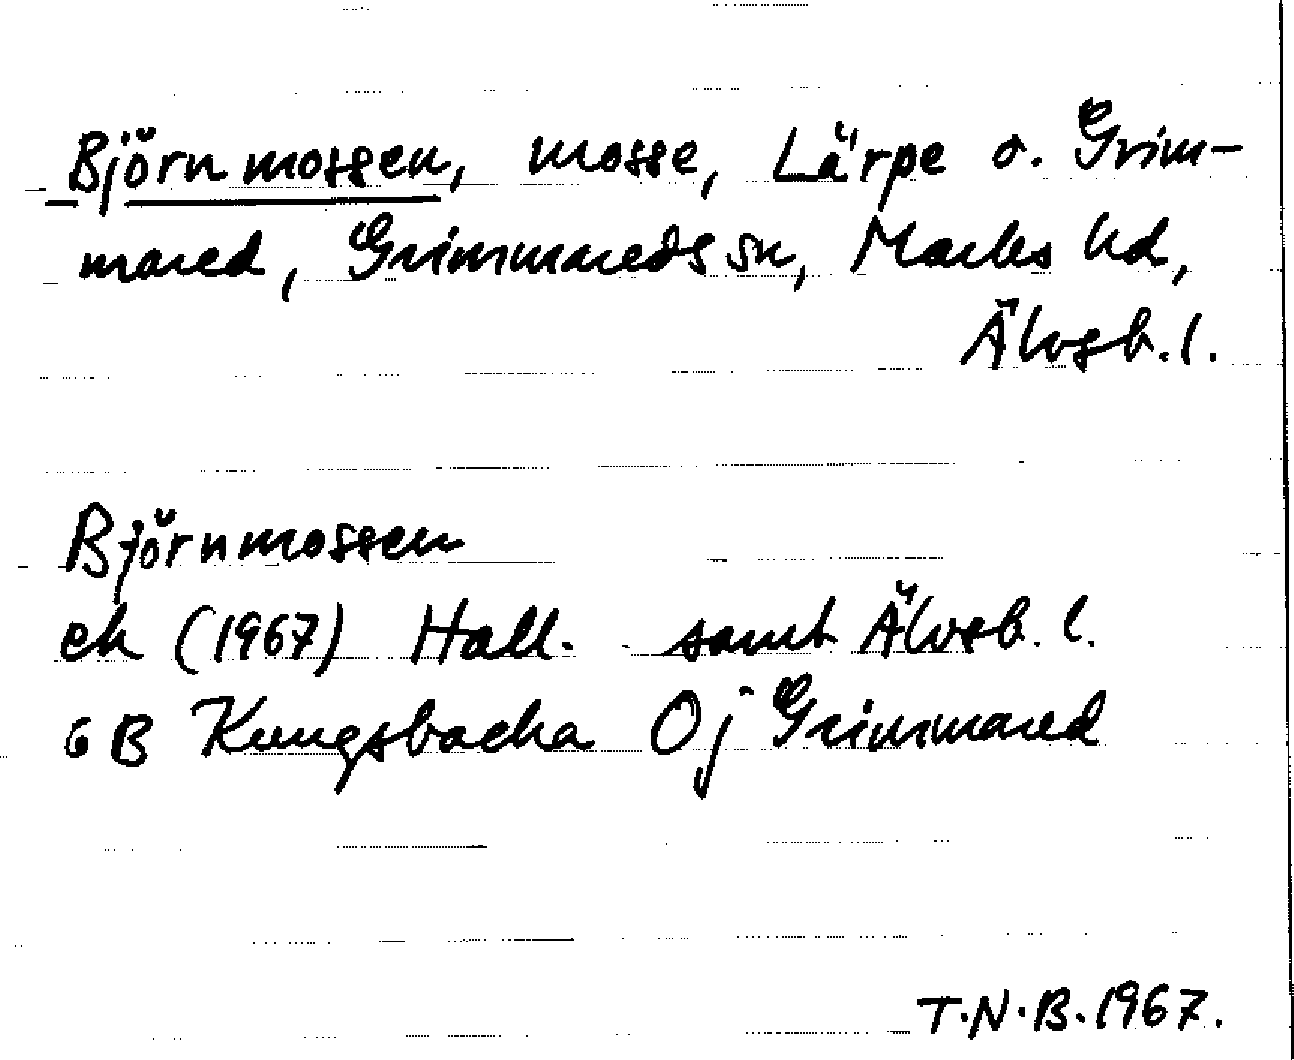 Björnmossen, mosse, Lärpe o. Grim-
mared, Grimmareds sn, Marks hd,
Älvsb. l.
Björnmossen
ek (1967) Hall. samt Älvsb. l.
6 B Kungsbacka Oj Grimmared
T.N.B. 1967.